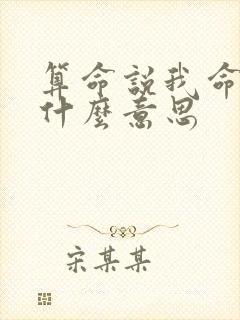 算命説我命
什麼意思
宋某某